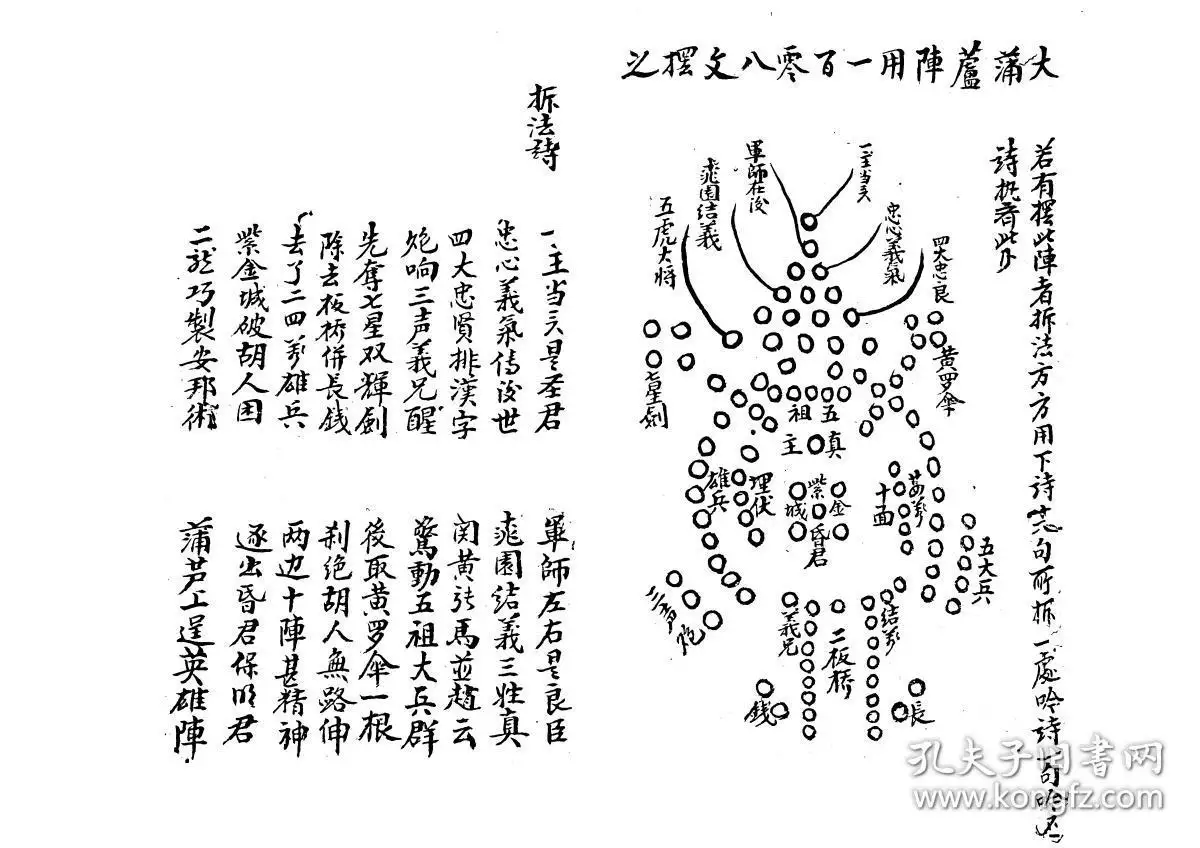 大蒲蘆陣用一百零八文擺之
若有擺此陣者拆法方方用下詩 句所拆一處吟詩一句吟
詩
一主当天
忠心義氣
四大忠良
軍師在後
桃園結義
五虎大将
黄罗傘
七星劍
五祖
真主
紫金城
昏君
埋伏
雄兵
十面
五大兵
三声炮
義兄
二板橋
結萬
長
錢
拆法詩
一主当天是圣君 軍師左右是良臣
忠心義氣傳後世 桃園結義三姓真
四大忠賢排漢字 関黄張馬並趙云
炮响三声義兄醒 驚動五祖大兵群
先奪七星双輝劍 後取黄罗傘一根
除去板桥併長錢 刹绝胡人無路伸
去了二四萬雄兵 两边十陣甚精神
紫金城破胡人困 逐出昏君保明君
二龙巧製安邦術 蒲芦上逞英雄陣
孔夫子旧书网
www.kongfz.com